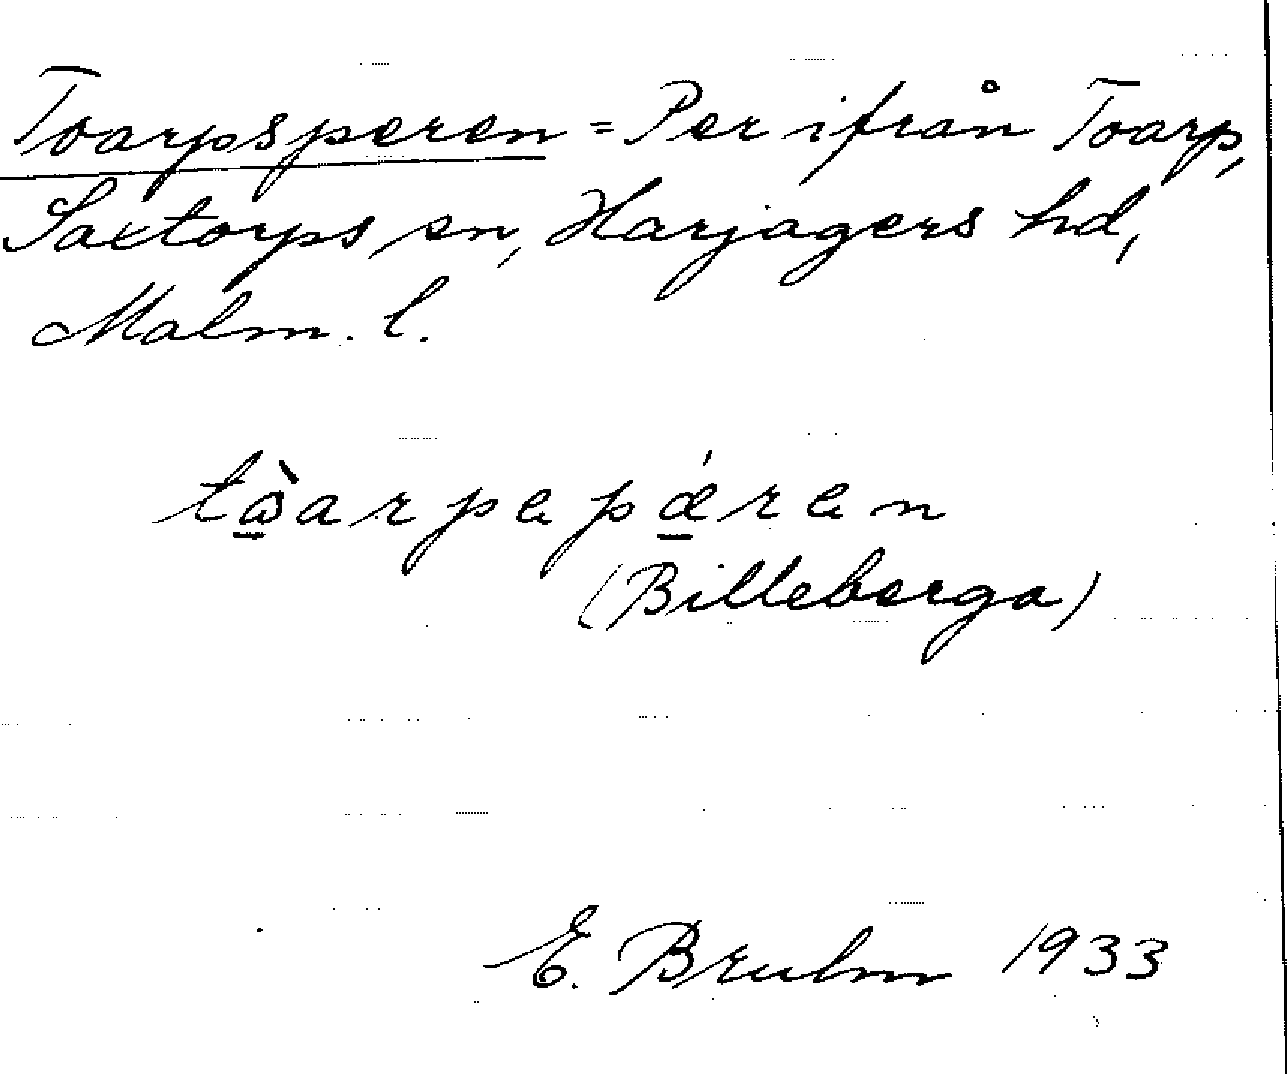 Toarpsperen = Per ifrån Toarp,
Saxtorps sn, Harjagers hd,
Malm. l.
(Billeberga)
E. Bruhn 1933